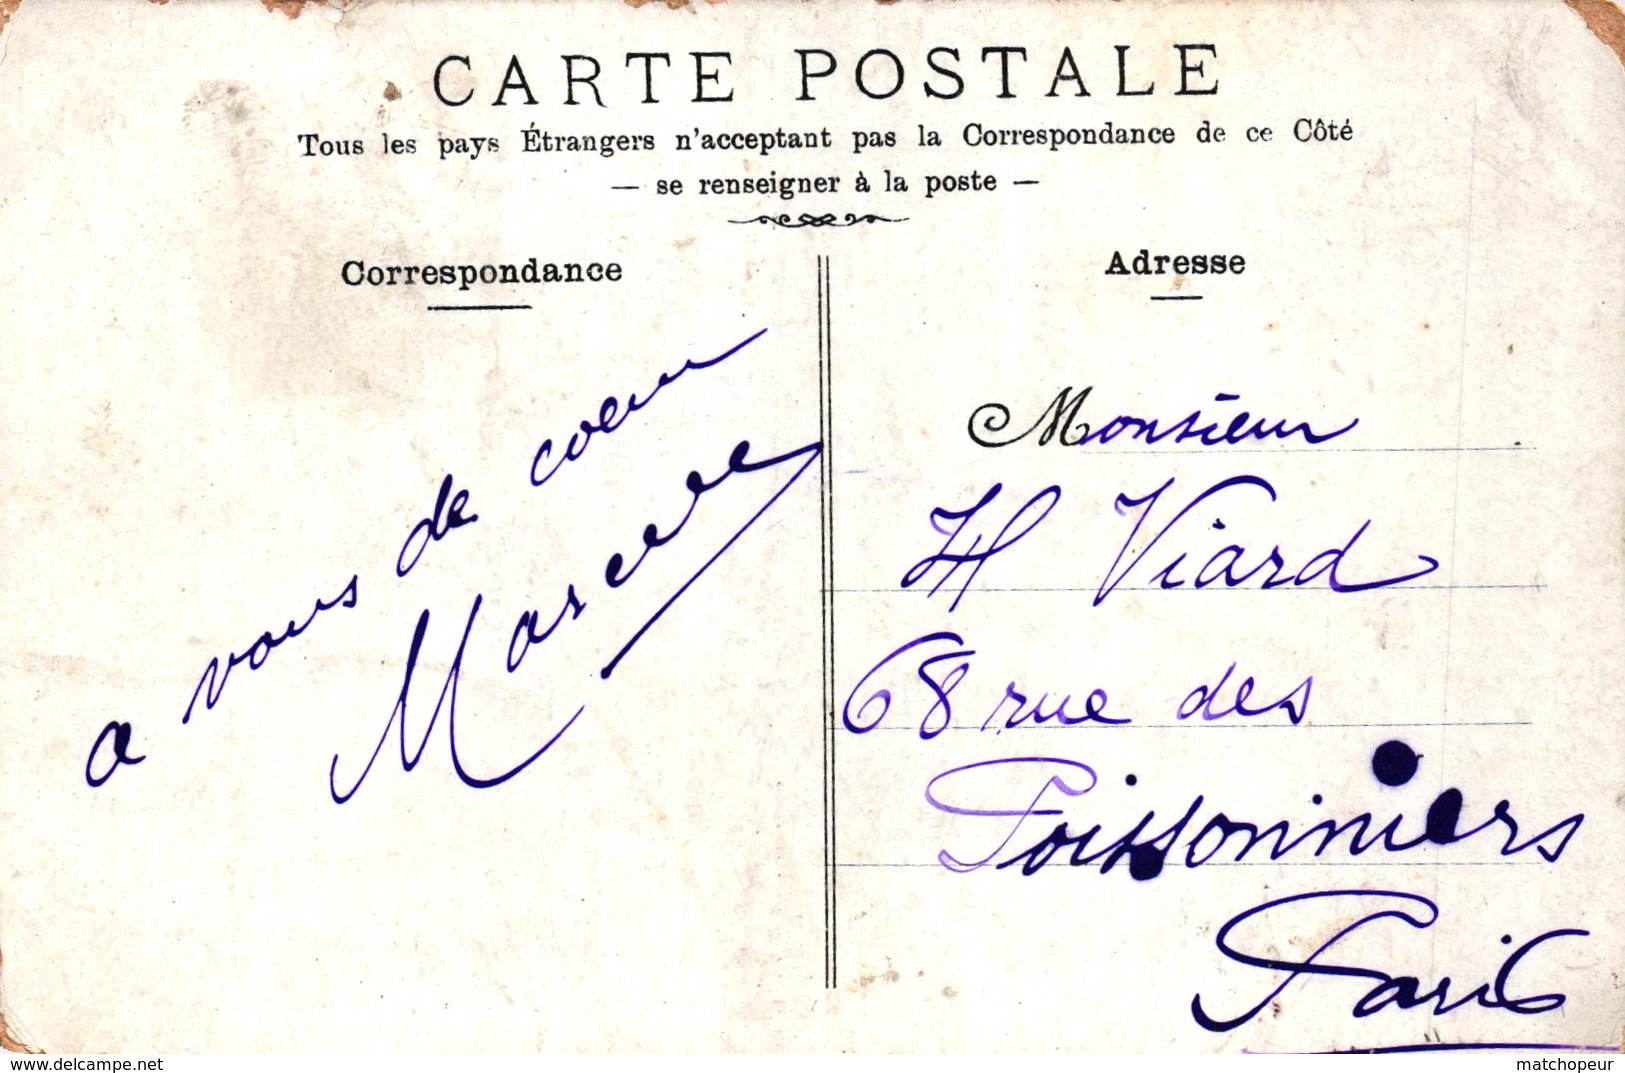 CARTE POSTALE
Tous les pays Étrangers n'acceptant pas la Correspondance de ce Côté
— se renseigner à la poste —
Correspondance
a vous de coeur
Marcelle
Adresse
Monsieur
H Viard
68 rue des
Poissonniers
Paris
www.delcampe.net
matchopeur